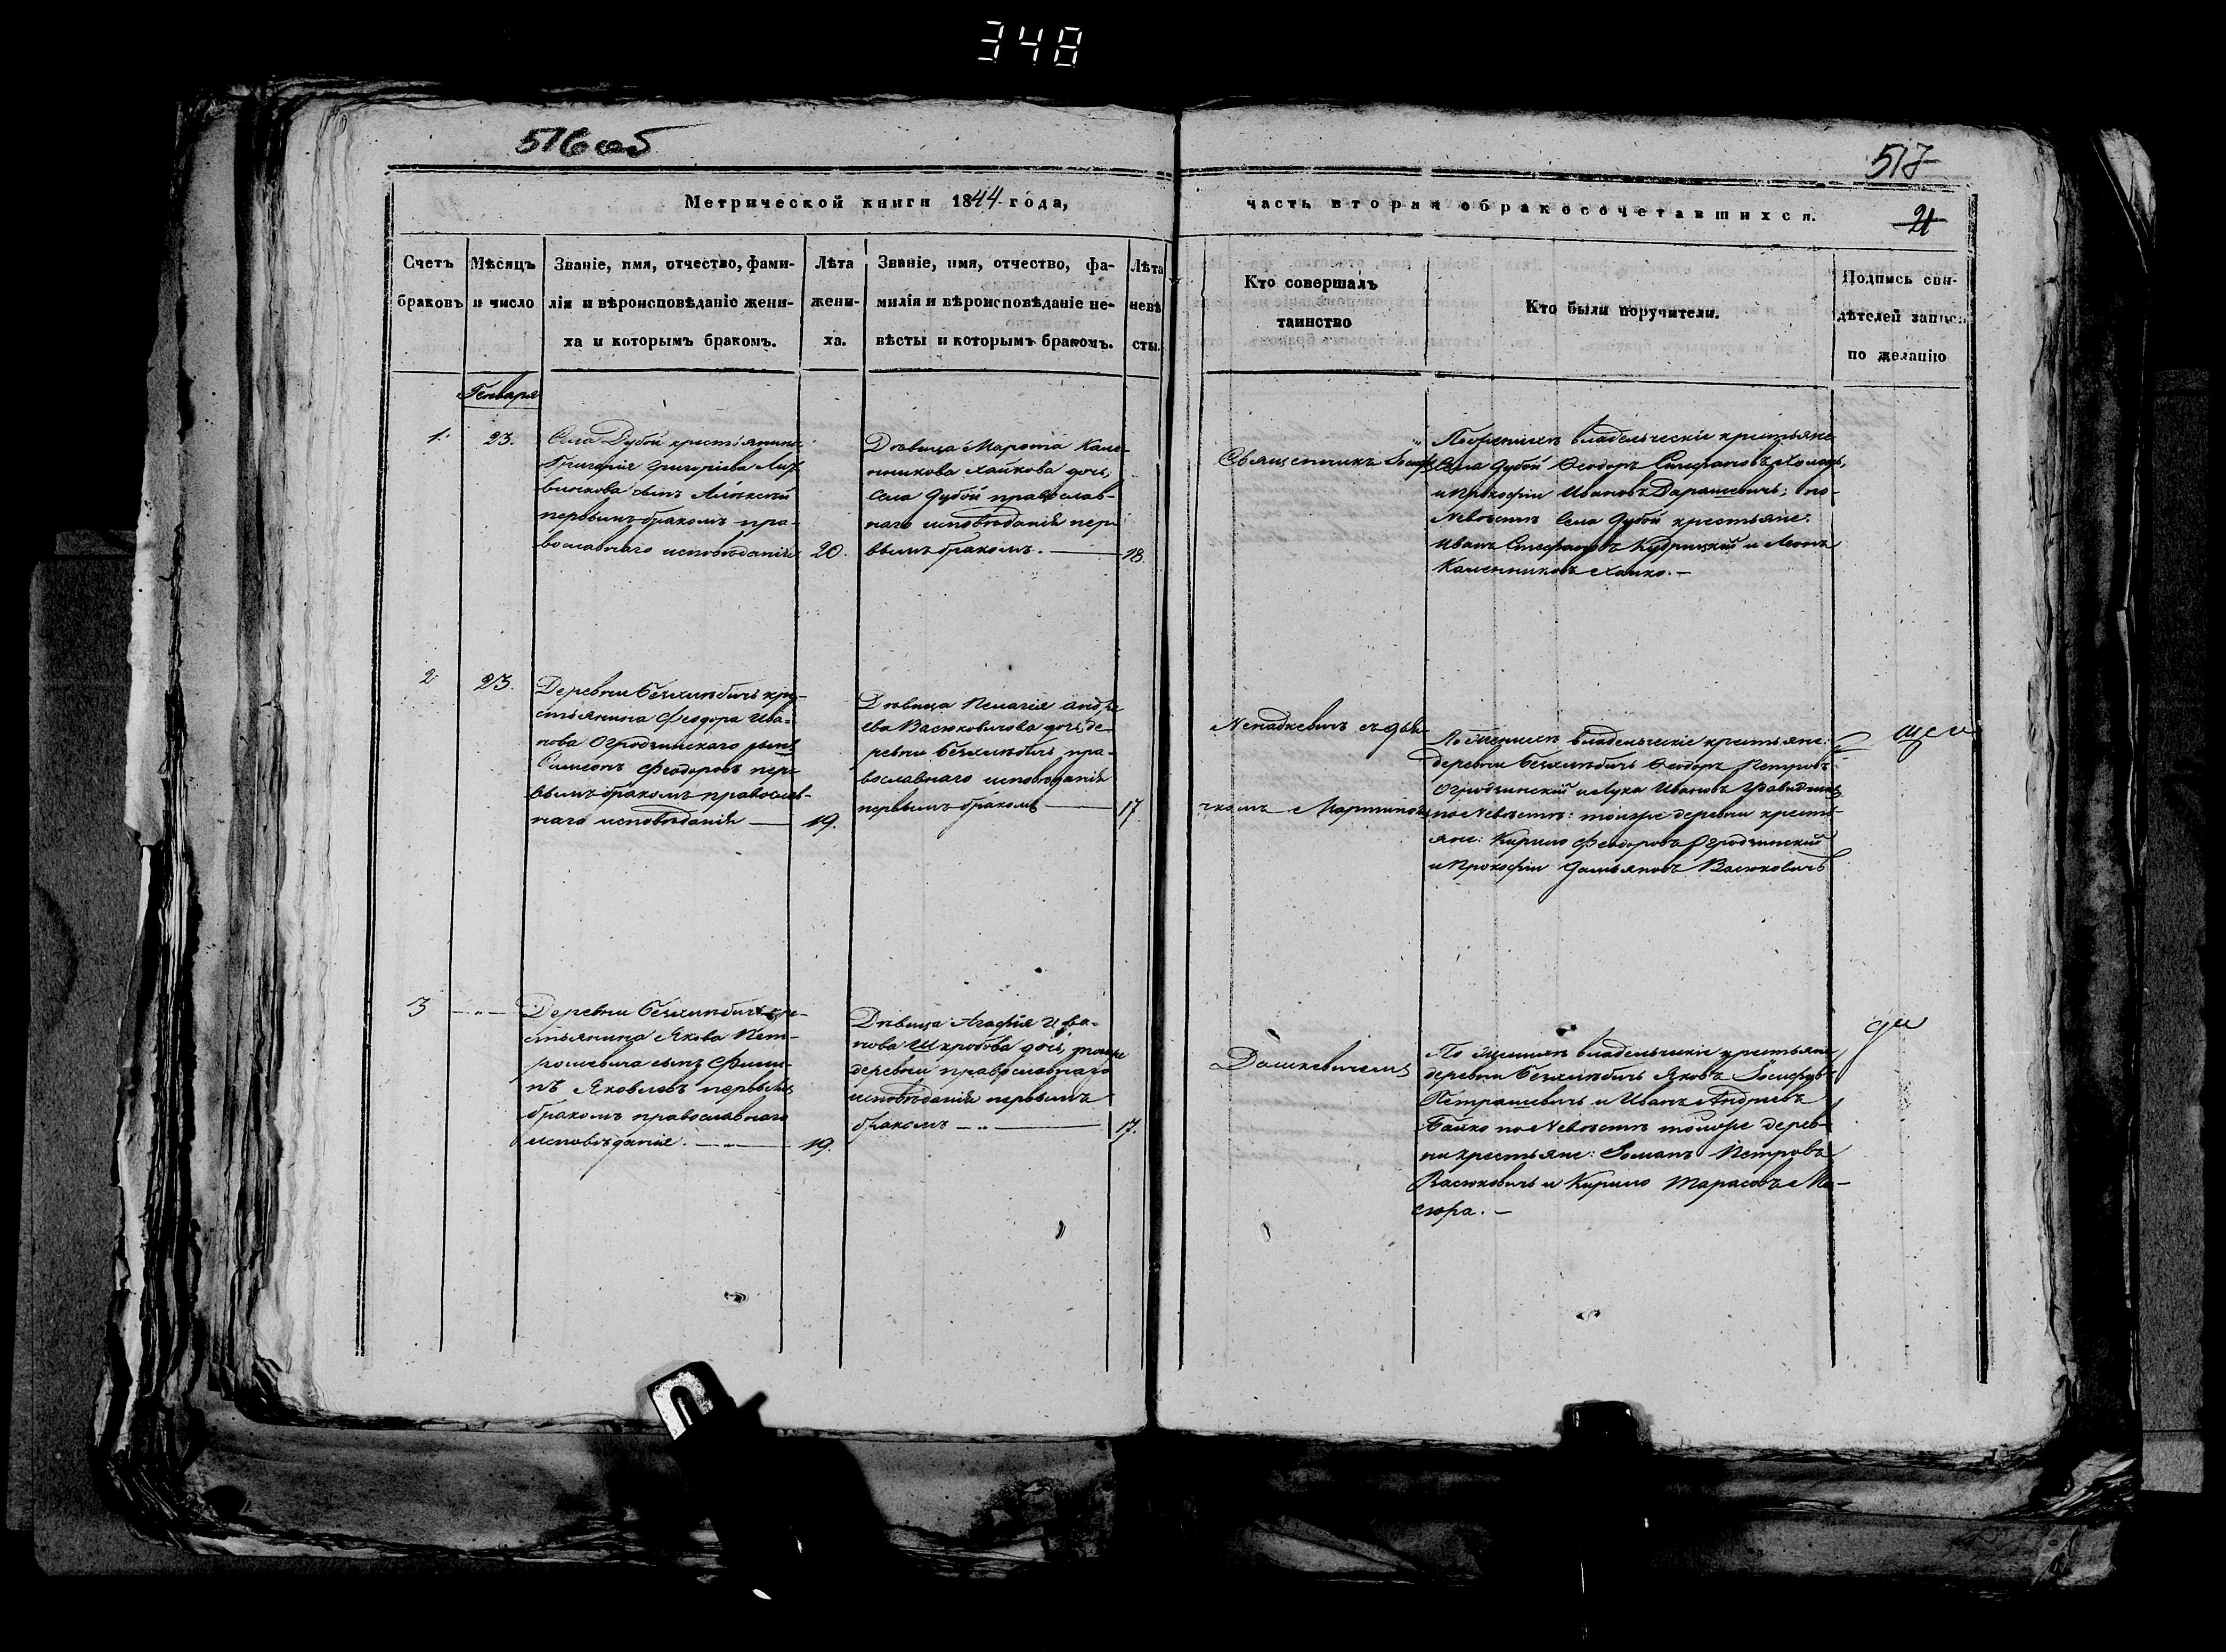 348
516 об
517
21
Метрической книги 1844 года,
часть вторая о бракосочетавшихся.
Счетъ браковъ
Мѣсяцъ и число
Званіе, имя, отчество, фами-
лія и вѣроисповѣданіе жени-
ха и которымъ бракомъ.
Лѣта
жени-
ха.
Званіе, имя, отчество, фа-
милія и вѣроисповѣданіе не-
вѣсты и которымъ бракомъ.
Лѣта
невѣ
сты.
Кто совершалъ
таинство
Кто были поручители.
Подпись сви-
дѣтелей записи
по желанію
Генваря
1.
23.
Села Дубой крестьянина
Григорія Григоріева
сынъ Алексѣй
первымъ бракомъ пра-
вославнаго исповѣданія
20.
Дѣвица Марѳа
Хайкова дочь,
села Дубой православ-
наго исповѣданія пер-
вымъ бракомъ.
18.
Священникъ
По женихѣ владѣльческіе крестьяне
Села Дубой Ѳеодоръ Стефановъ
и Прокофій Ивановъ Дарашевичъ; по
Невѣстѣ Села Дубой крестьяне:
Иванъ Стефановъ Кудрицкій и Леонъ
Хайко.
2
23.
Деревни Безхлѣбичъ кре-
стьянина Феодора Ива-
нова Огродзинскаго сынъ
Симеонъ Феодоровъ пер-
вымъ бракомъ православ-
наго исповѣданія
19.
Дѣвица Пелагія Андре
ева Васюковичова дочь, де-
ревни Безхлѣбичъ пра-
вославнаго исповѣданія
первымъ бракомъ
17.
Ненадкевичъ съ дья-
чкомъ Мартиномъ
По женихѣ владѣльческіе крестьяне:
деревни Безхлѣбичъ Ѳеодоръ Петровъ
Огродзинскій и Лука Ивановъ
по Невѣстѣ: тойже деревни кресть-
яне: Кирило Феодоровъ Огродзинскій
и Прокофій Дамьяновъ Васюковичъ
3
Деревни Безхлѣбичъ кре-
стьянина Якова Пет-
рошевича сынъ Фили-
пъ Яковлевъ первымъ
бракомъ православнаго
исповѣданія.
19.
Дѣвица Агафія Ива-
нова Шкробова дочь, тойже
деревни православнаго
исповѣданія первымъ
бракомъ
17.
Дашкевичемъ
По женихѣ владѣльческіе крестьяне,
деревни Безхлѣбичъ Яковъ Іосифовъ
Петрашевичъ и Иванъ Андреевъ
Байко по Невѣстѣ тойже дерев-
ни крестьяне: Романъ Петровъ
Васюковичъ и Кирило Тарасовъ Ма-
сюра.